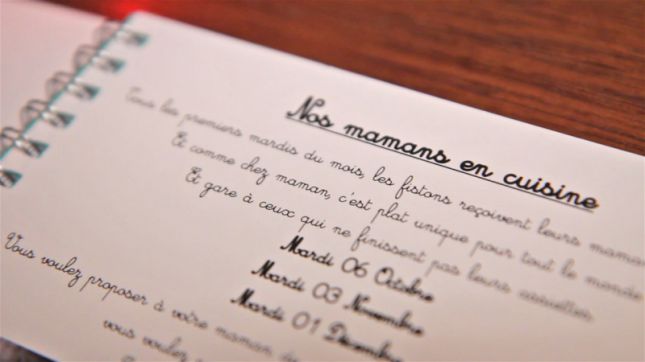 Nos mamans en cuisine
Tous les premiers mardis du mois, les fistons reçoivent leurs maman
Et comme chez maman, c'est plat unique pour tout le monde
Et gare à ceux qui ne finissent pas leurs assiettes
Mardi 06 Octobre
Mardi 03 Novembre
Mardi 01 Décembre
Vous voulez proposer à votre maman de
vous voulez